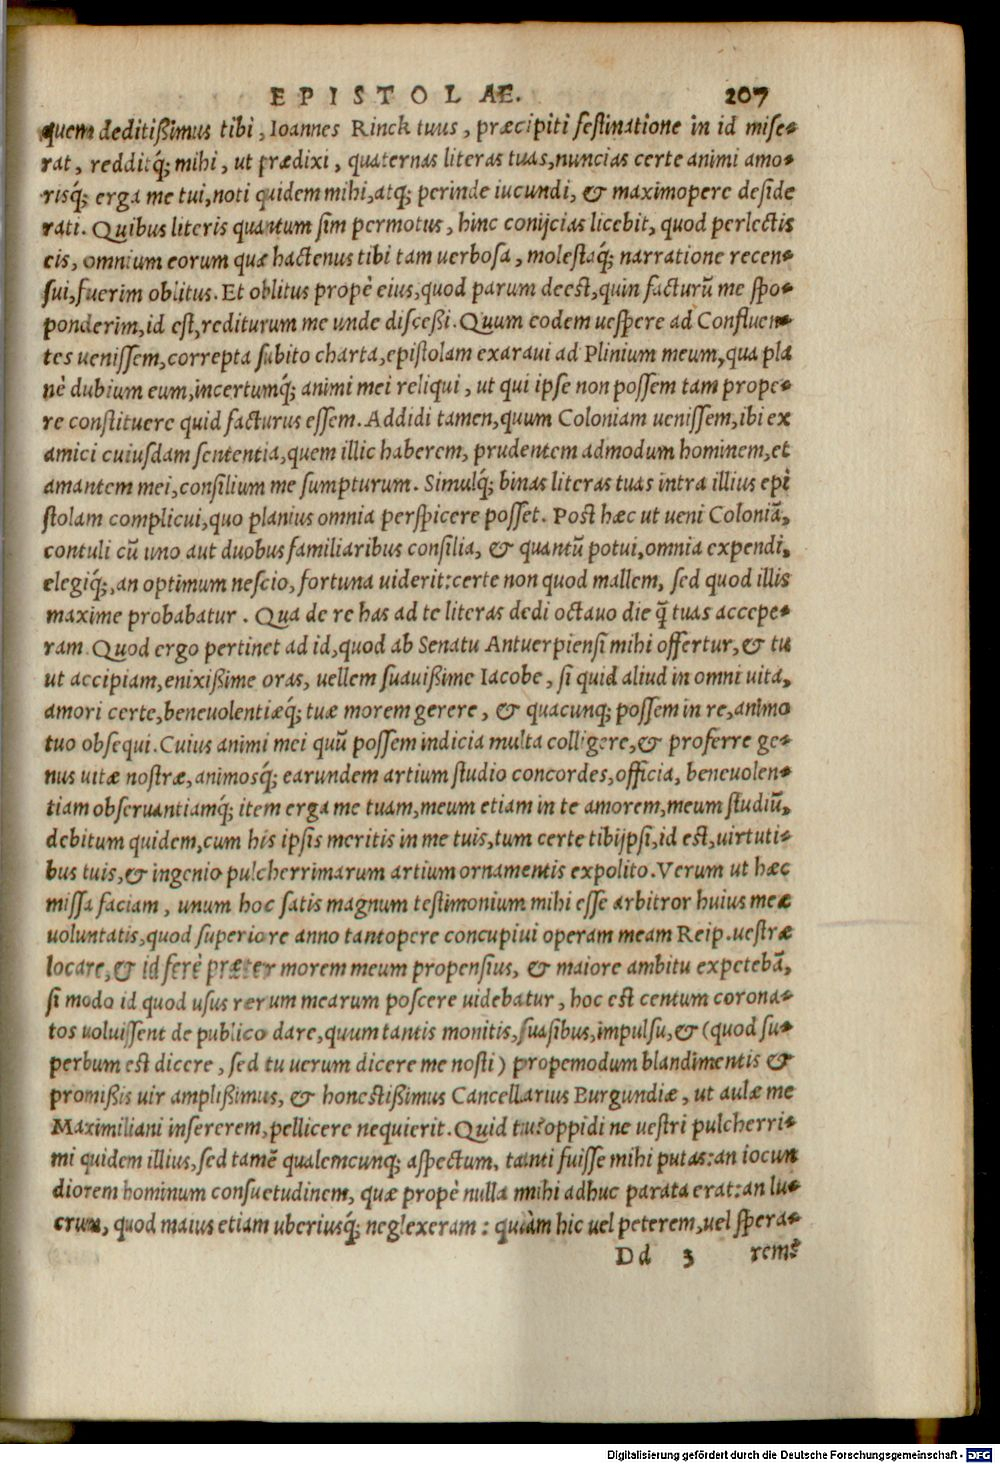 EPISTOLAE. 207
quem deditißimus tibi, Ioannes Rinck tuus, præcipiti festinatione in id mise-
rat, redditq́; mihi, ut prædixi, quaternas literas tuas, nuncias certe animi amo-
risq́; erga me tui, noti quidem mihi, atq; perinde iucundi, & maximopere deside
rati. Quibus literis quantum sim permotus, hinc conijcias licebit, quod perlectis
eis, omnium eorum quæ hactenus tibi tam uerbosa, molestaq́; narratione recen-
sui, fuerim oblitus. Et oblitus propè eius, quod parum deest, quin facturũ me spo-
ponderim, id est, rediturum me unde discessi. Quum eodem uespere ad Confluen-
tes uenissem, correpta subito charta, epistolam exaraui ad Plinium meum, qua pla
nè dubium eum, incertumq́; animi mei reliqui, ut qui ipse non possem tam prope-
re constituere quid facturus essem. Addidi tamen, quum Coloniam uenissem, ibi ex
amici cuiusdam sententia, quem illic haberem, prudentem admodum hominem, et
amantem mei, consilium me sumpturum. Simulq́; binas literas tuas intra illius epi
stolam complicui, quo planius omnia perspicere posset. Post hæc ut ueni Coloniã,
contuli cũ uno aut duobus familiaribus consilia, & quantũ potui, omnia expendi,
elegiq́;, an optimum nescio, fortuna uiderit: certe non quod mallem, sed quod illis
maxime probabatur. Qua de re has ad te literas dedi octauo die q̃ tuas accepe-
ram. Quod ergo pertinet ad id, quod ab Senatu Antuerpiensi mihi offertur, & tu
ut accipiam, enixißime oras, uellem suauißime Iacobe, si quid aliud in omni uita,
amori certe, beneuolentiæq́; tuæ morem gerere, & quacunq; possem in re, animo
tuo obsequi. Cuius animi mei quũ possem indicia multa colligere, & proferre ge-
nus uitæ nostræ, animosq́; earundem artium studio concordes, officia, beneuolen-
tiam obseruantiamq́; item erga me tuam, meum etiam in te amorem, meum studiũ,
debitum quidem, cum his ipsis meritis in me tuis, tum certe tibi ijpsi, id est, uirtuti-
bus tuis, & ingenio pulcherrimarum artium ornamentis expolito. Verum ut hæc
missa faciam, unum hoc satis magnum testimonium mihi esse arbitror huius meæ
uoluntatis, quod superiore anno tantopere concupiui operam meam Reip. uestræ
locare, & id ferè præter morem meum propensius, & maiore ambitu expetebã,
si modo id quod usus rerum mearum poscere uidebatur, hoc est centum corona-
tos uoluissent de publico dare, quum tantis monitis, suasibus, impulsu, & (quod su-
perbum est dicere, sed tu uerum dicere me nosti) propemodum blandimentis &
promißis uir amplißimus, & honestißimus Cancellarius Burgundiæ, ut aulæ me
Maximiliani insererem, pellicere nequierit. Quid tu? oppidi ne uestri pulcherri-
mi quidem illius, sed tamẽ qualemcunq; aspectum, tanti fuisse mihi putas: an iocun
diorem hominum consuetudinem, quæ propè nulla mihi adhuc parata erat: an lu-
crum, quod maius etiam uberiusq́; neglexeram: quàm hic uel peterem, uel spera-
Dd 3 rem?
Digitalisierung gefördert durch die Deutsche Forschungsgemeinschaft - DFG